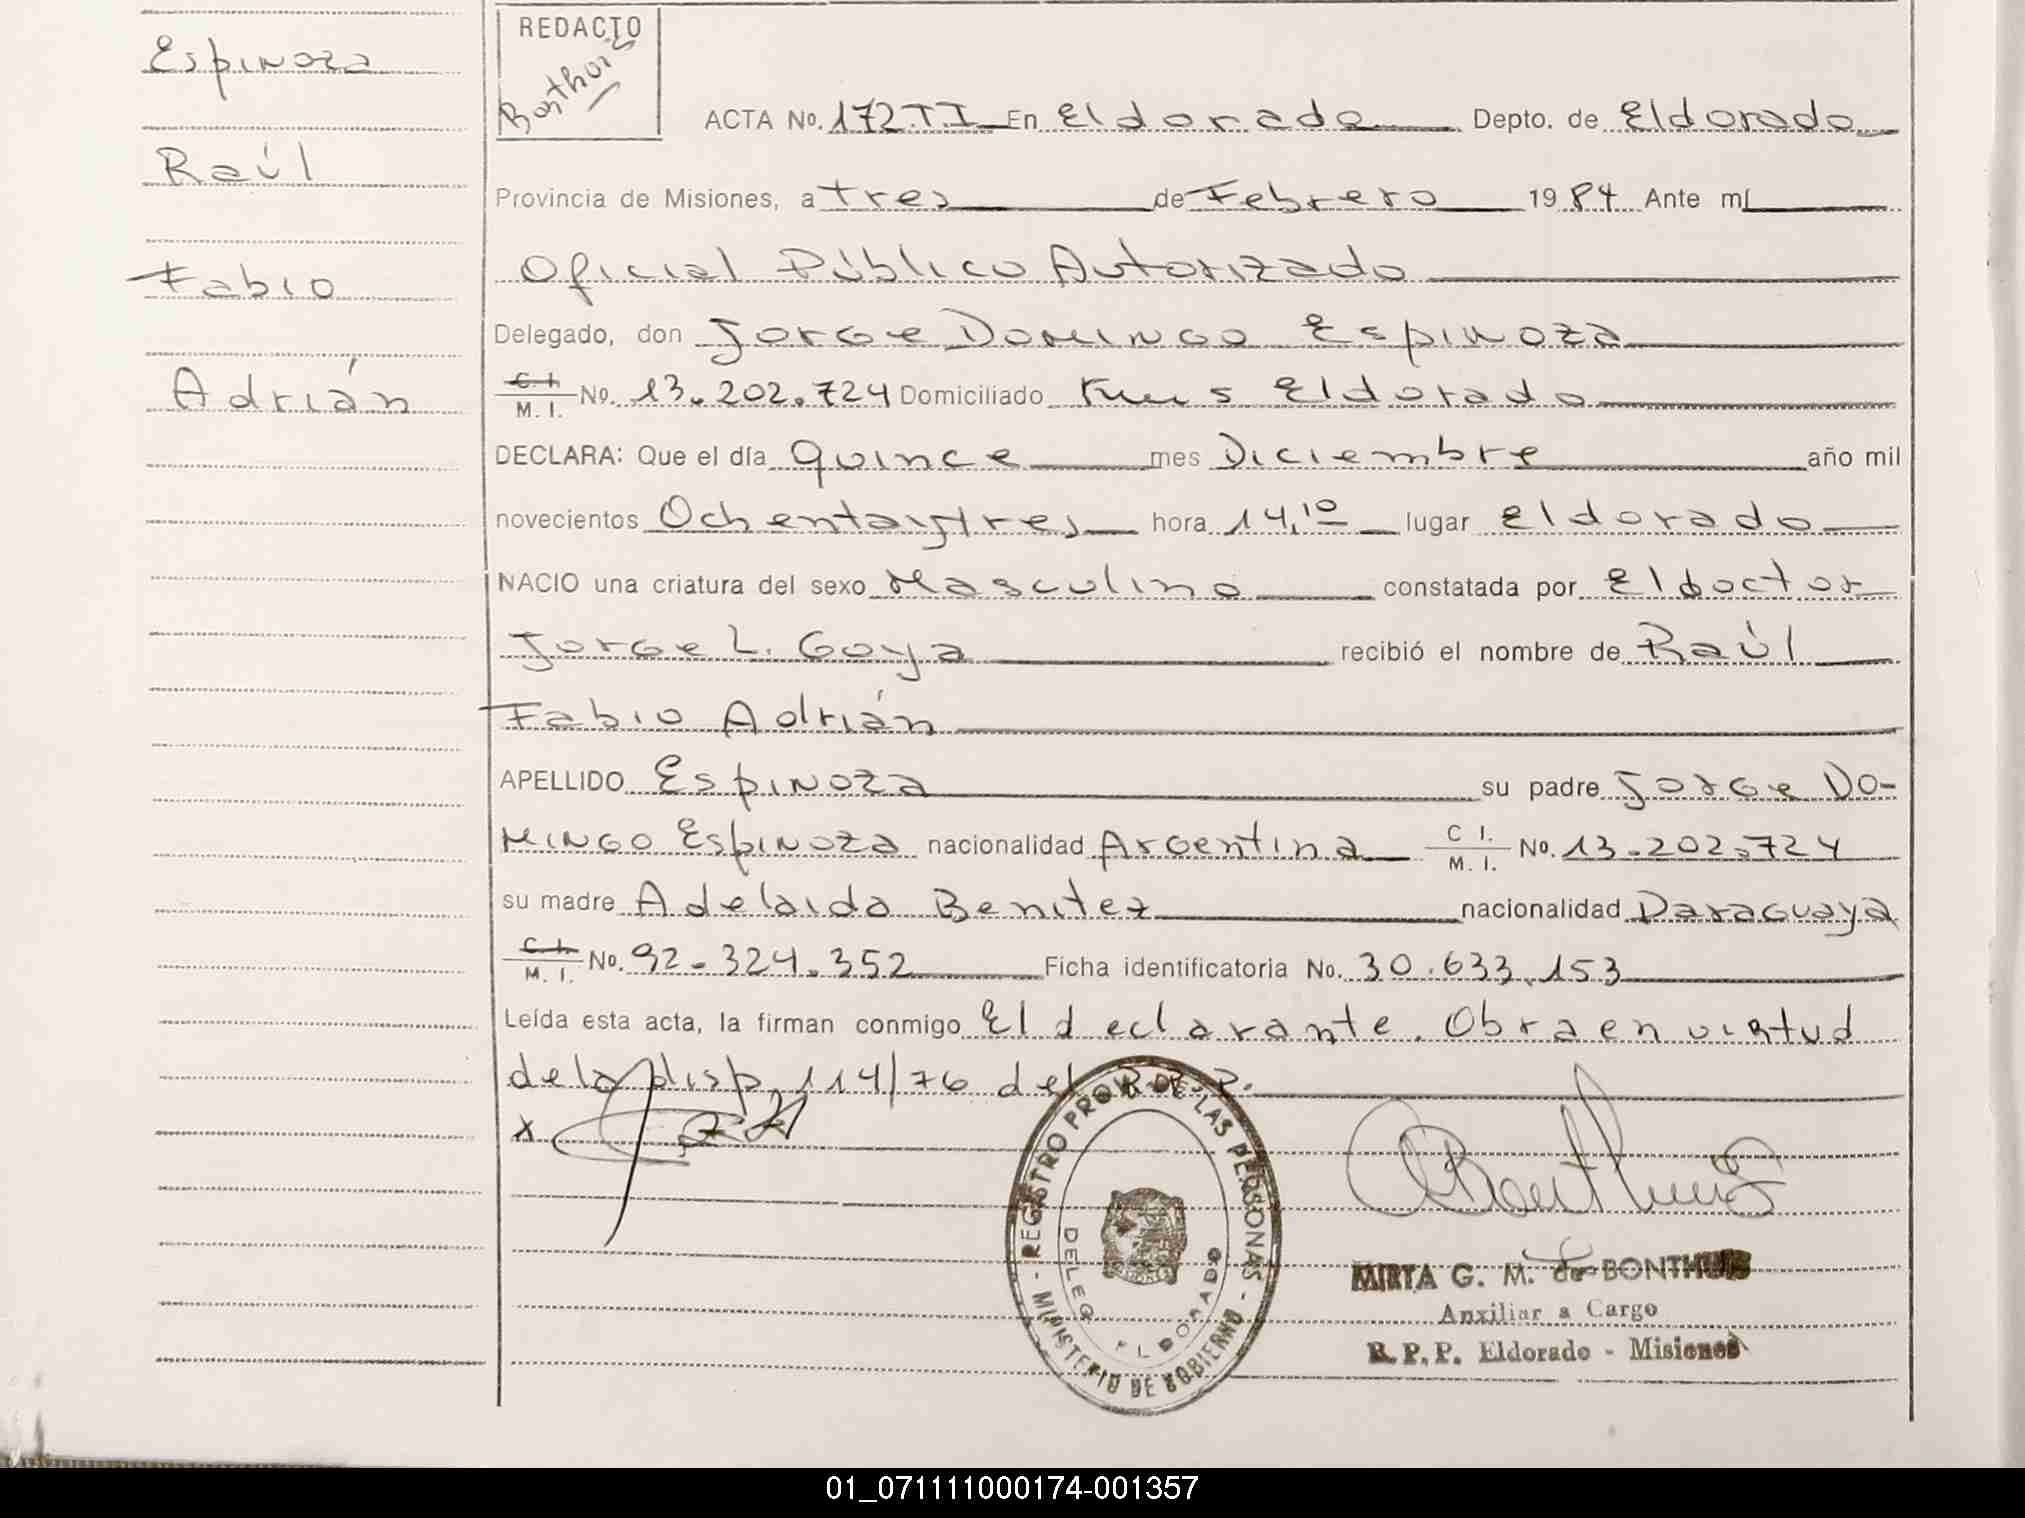 Espinoza
Raúl
Fabio
Adrián
REDACTO
Bonthuis
ACTA No. 172.T.I En Eldorado Depto. de Eldorado
Provincia de Misiones, a tres de Febrero 1984 Ante mí
Oficial Público Autorizado
Delegado, don Jorge Domingo Espinoza
C.I. M.I. No. 13.202.724 Domiciliado Eldorado
DECLARA: Que el día quince mes Diciembre año mil
novecientos Ochentaytres hora 14,10 lugar Eldorado
NACIO una criatura del sexo Masculino constatada por El doctor
Jorge L. Goya recibió el nombre de Raúl
Fabio Adrián
APELLIDO Espinoza su padre Jorge Do-
mingo Espinoza nacionalidad Argentina C I. M. I. No. 13.202.724
su madre Adelaida Benitez nacionalidad Paraguaya
C.I. M.I. No. 92.324.352 Ficha identificatoria No. 30.633.153
Leída esta acta, la firman conmigo El declarante. Obra en virtud
de la disp. 114/76 del R.P.P.
x
- REGISTRO PROV. DE LAS PERSONAS -
MINISTERIO DE GOBIERNO
DELEG. ELDORADO
Bonthuis
MIRTA G. M. de BONTHUIS
Auxiliar a Cargo
R.P.P. Eldorado - Misiones
01_071111000174-001357